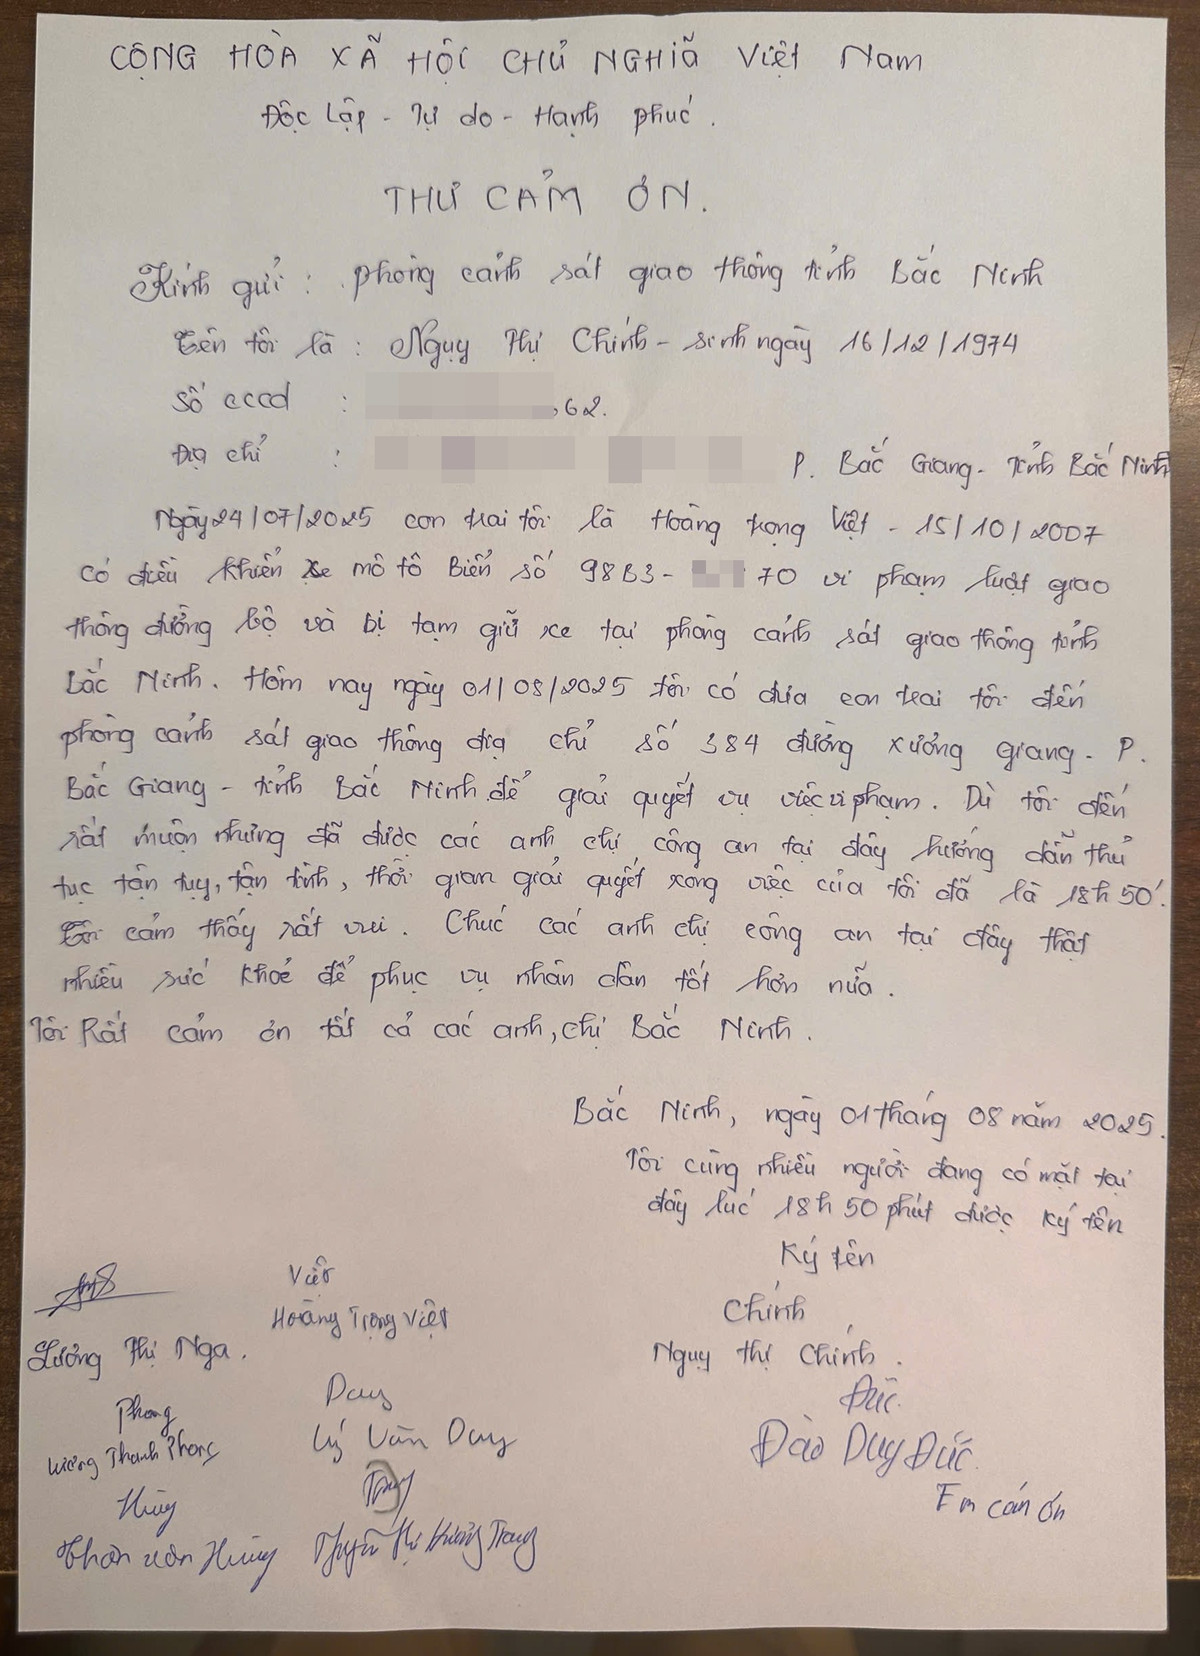 CỘNG HÒA XÃ HỘI CHỦ NGHĨA Việt Nam
Độc Lập - Tự do - Hạnh phúc.
THƯ CẢM ƠN.
Kính gửi : phòng cảnh sát giao thông tỉnh Bắc Ninh
Tên tôi là : Ngụy Thị Chính - sinh ngày 16/12/1974
Số cccd : 62.
Địa chỉ : P. Bắc Giang - tỉnh Bắc Ninh
Ngày 24/07/2025 con trai tôi là Hoàng trọng Việt - 15/10/2007
có điều khiển xe mô tô Biển số 98B3- 70 vi phạm luật giao
thông đường bộ và bị tạm giữ xe tại phòng cảnh sát giao thông tỉnh
Bắc Ninh. Hôm nay ngày 01/08/2025 tôi có đưa con trai tôi đến
phòng cảnh sát giao thông địa chỉ số 384 đường xương giang - P.
Bắc Giang - tỉnh Bắc Ninh để giải quyết vụ việc vi phạm. Dù tôi đến
rất muộn nhưng đã được các anh chị công an tại đây hướng dẫn thủ
tục tận tụy, tận tình, thời gian giải quyết xong việc của tôi đã là 18h 50'.
Tôi cảm thấy rất vui. Chúc các anh chị công an tại đây thật
nhiều sức khoẻ để phục vụ nhân dân tốt hơn nữa.
Tôi Rất cảm ơn tất cả các anh, chị Bắc Ninh.
Bắc Ninh, ngày 01 tháng 08 năm 2025.
Tôi cùng nhiều người đang có mặt tại
đây lúc 18h 50 phút được ký tên
Ký tên
Việt
Hoàng Trọng Việt
Chính
Lương Thị Nga.
Ngụy thị Chính.
Phong
Lương Thanh Phong
Duy
Lý Văn Duy
Đức
Đào Duy Đức
Em cám ơn
Hùng
Thân văn Hùng
Thị Hương Trang